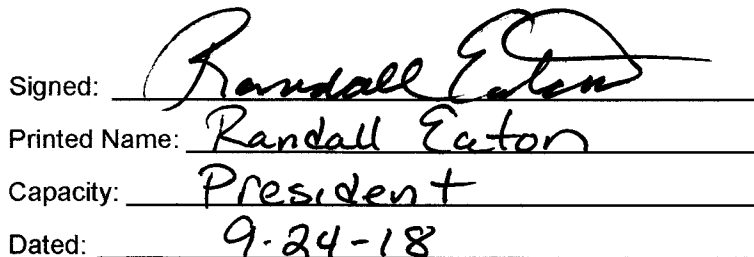 Signed: Randall Eaton
Printed Name: Randall Eaton
Capacity: President
Dated: 9-24-18